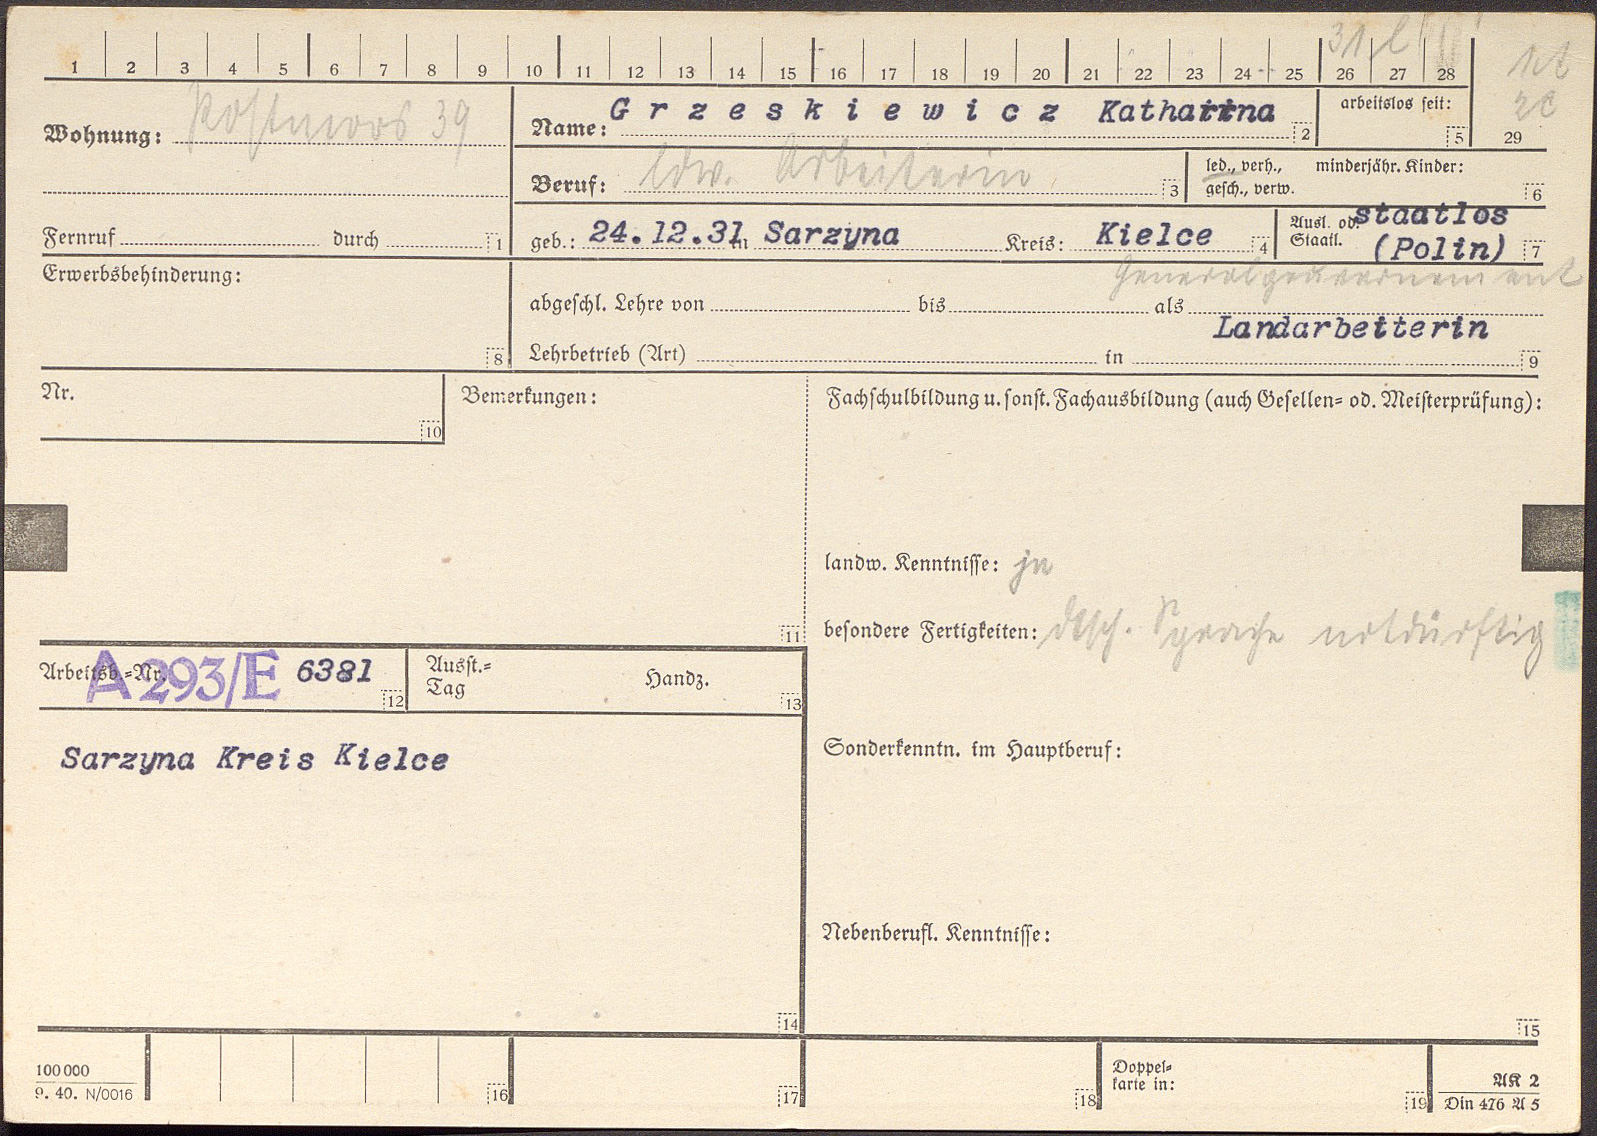 31, l
1 2 3 4 5 6 7 8 9 10 11 12 13 14 15 16 17 18 19 20 21 22 23 24 25 26 27 28
Wohnung: Postmoor 39
Name: Grzeskiewicz Katharina 2
arbeitslos seit: 5
29
Beruf: ldw. Arbeiterin 3
led., verh., gesch., verw.
minderjähr. Kinder: 6
Fernruf durch 1
geb.: 24.12.31 in Sarzyna Kreis: Kielce 4
Ausl. od. Staatl. staatlos (Polin) 7
Generalgouvernement
Erwerbsbehinderung: 8
abgeschl. Lehre von bis als
Landarbeiterin
Lehrbetrieb (Art) in 9
Nr. 10
Bemerkungen: 11
Fachschulbildung u. sonst. Fachausbildung (auch Gesellen= od. Meisterprüfung):
landw. Kenntnisse: ja
besondere Fertigkeiten: dtsch. Sprache notdürftig
Arbeitsb.=Nr. A 293/E 6381 12
Ausst.=Tag Handz. 13
Sarzyna Kreis Kielce
Sonderkenntn. im Hauptberuf:
Nebenberufl. Kenntnisse:
14 15
100 000
9. 40. N/0016
16 17 18
Doppel=
karte in: 19
AK 2
Din 476 A 5